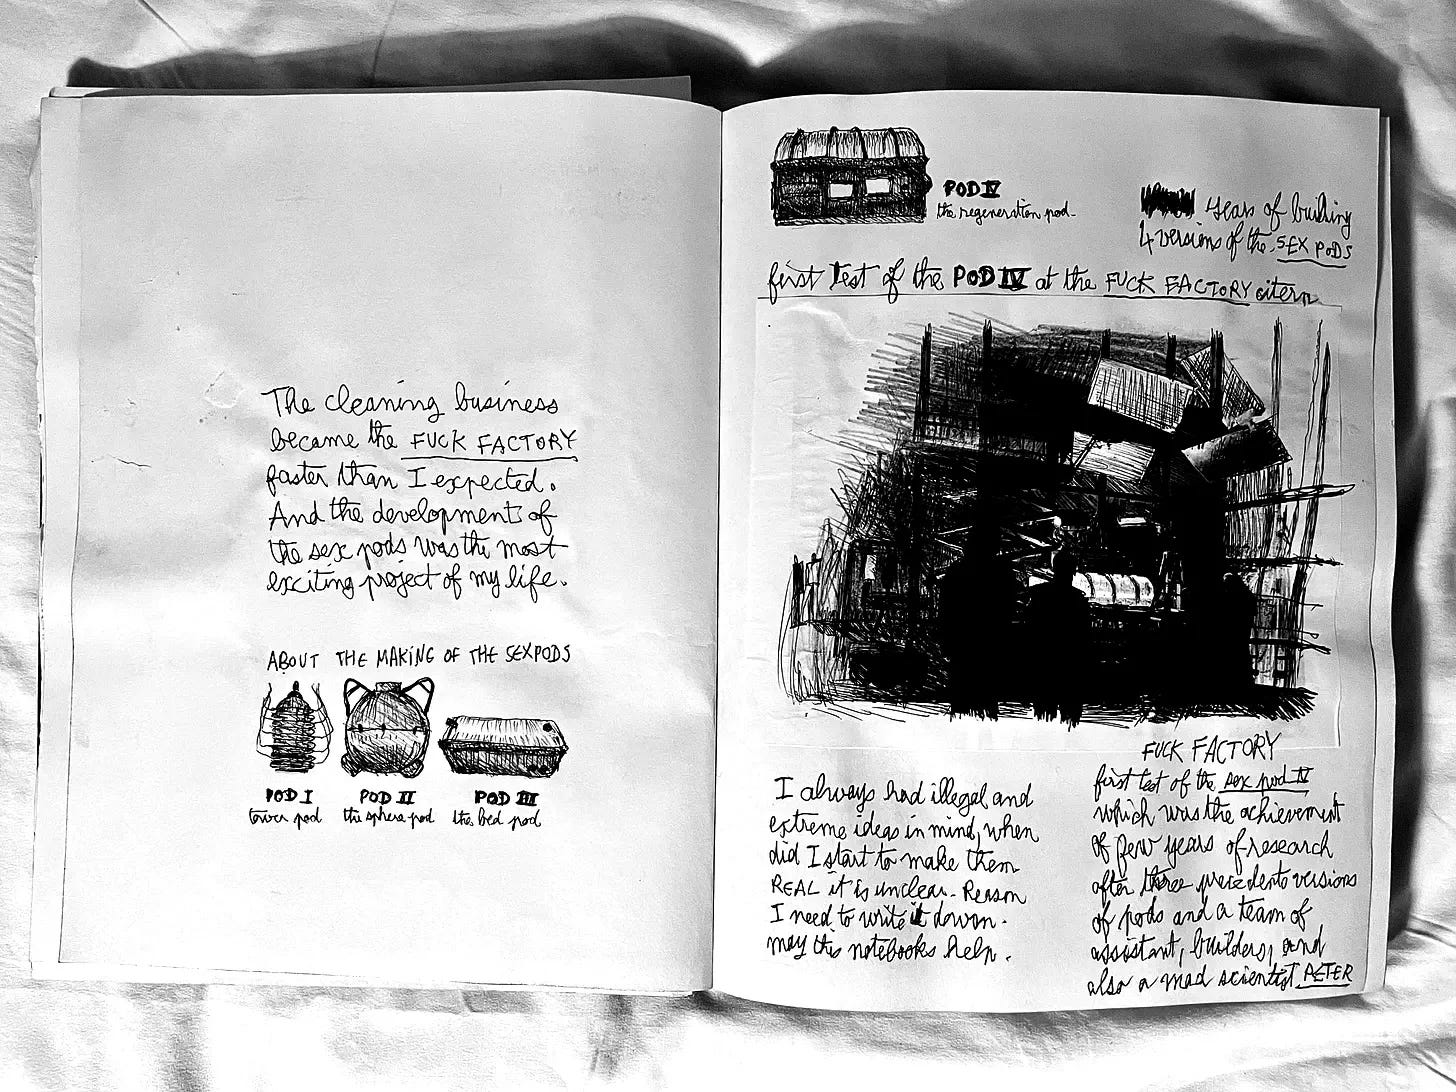 The cleaning business
became the FUCK FACTORY
faster than I expected.
And the development of
the sex pods was the most
exciting project of my life.
ABOUT THE MAKING OF THE SEXPODS
POD I
tower pod
POD II
the sphere pod
POD III
the bed pod
POD IV
the regeneration pod.
years of building
4 versions of the SEX PODS
first test of the POD IV at the FUCK FACTORY citern
I always had illegal and
extreme ideas in mind, when
did I start to make them
REAL it is unclear. Reason
I need to write it down.
may this notebooks help.
FUCK FACTORY
first test of the sex pod IV
which was the achievement
of few years of research
after three precedents versions
of pods and a team of
assistant, builders, and
also a mad scientist PETER